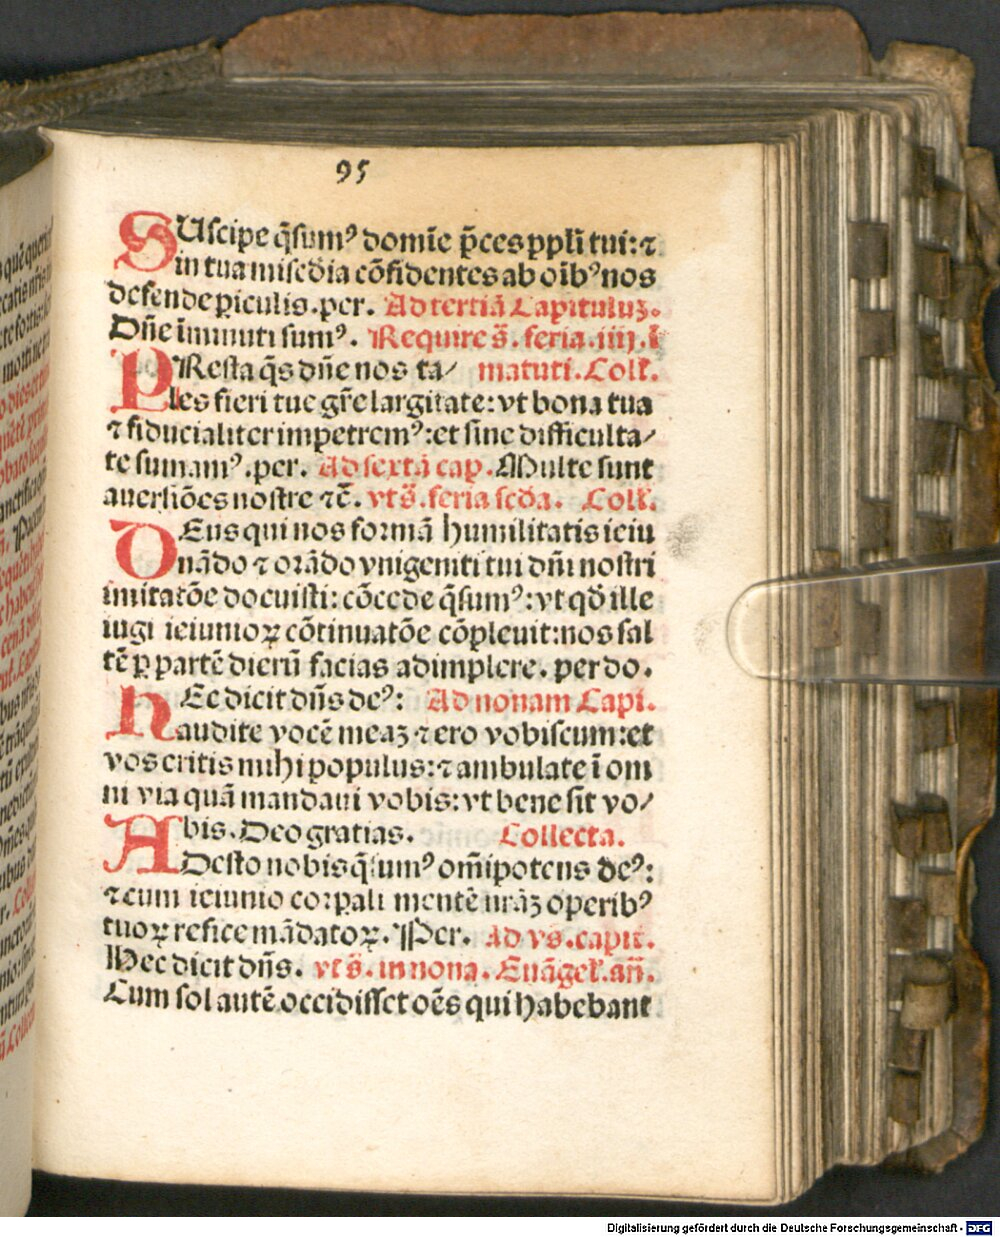 95
SUscipe q̄sumꝰ domīe p̄ces ppl̄i tui: ⁊
in tua mis̄c̄dia cōfidentes ab oīb̾ nos
defende ꝑiculis. per. Ad tertiā Capituluꝫ.
Dn̄e inmuti sumꝰ. Require s̄. feria. iiij. ī
PResta q̄s dn̄e nos ta⸗ matuti. Coll̄.
les fieri tue gr̄e largitate: vt bona tua
⁊ fiducialiter impetremꝰ: et sine difficulta⸗
te sumamꝰ. per. Ad sextā cap. Multe sunt
auersiōes nostre ⁊c̄. vts̄. feria sc̄da. Coll̄.
DEus qui nos formā humilitatis ieiu
nādo ⁊ orādo vnigeniti tui dn̄i nostri
imitatōe docuisti: cōcede q̄sumꝰ: vt qd̄ ille
iugi ieiunioꝝ cōtinuatōe cōpleuit: nos sal
tē ꝑ partē dierū facias adimplere. per do.
HEc dicit dn̄s deꝰ: Ad nonam Capi.
audite vocē meaꝫ ⁊ ero vobiscum: et
vos eritis mihi populus: ⁊ ambulate ī om
ni via quā mandaui vobis: vt bene sit vo⸗
bis. Deo gratias. Collecta.
ADesto nobis q̄sumꝰ om̄ipotens deꝰ:
⁊ cum ieiunio corpali mentē nr̄aꝫ operibꝰ
tuoꝝ refice mādatoꝝ. Per. Ad vs̄. capit̄.
Hec dicit dn̄s. vts̄. in nona. Euāgel̄. an̄.
Cum sol autē occidisset oēs qui habebant
Digitalisierung gefördert durch die Deutsche Forschungsgemeinschaft - DFG